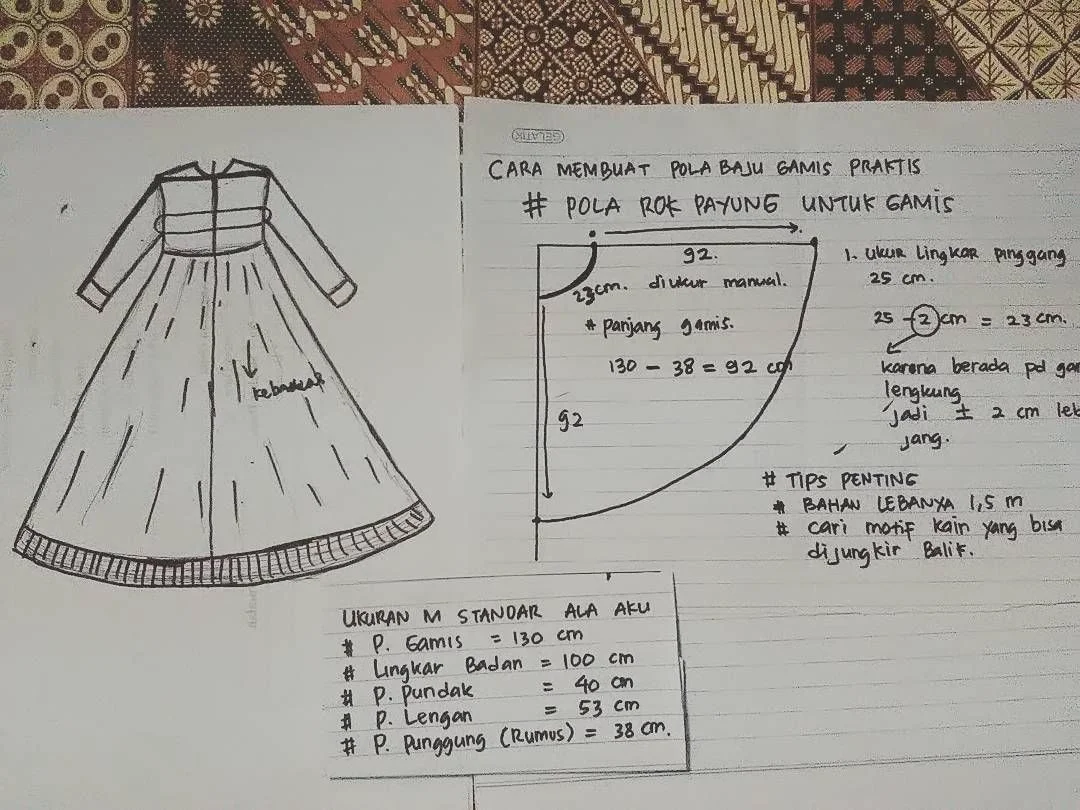 GELATIK
CARA MEMBUAT POLA BAJU GAMIS PRAKTIS
# POLA ROK PAYUNG UNTUK GAMIS
92.
23 cm. diukur manual.
* Panjang gamis.
130 - 38 = 92 cm
92
1. Ukur Lingkar pinggang
25 cm.
25 - 2 cm = 23 cm.
karena berada pd
lengkung
jadi ± 2 cm
jang.
# TIPS PENTING
* BAHAN LEBANYA 1,5 m
# Cari motif kain yang bisa
dijungkir Balik.
UKURAN M STANDAR ALA AKU
# P. Gamis = 130 cm
# Lingkar Badan = 100 cm
# P. Pundak = 40 cm
# P. Lengan = 53 cm
# P. Punggung (Rumus) = 38 cm.